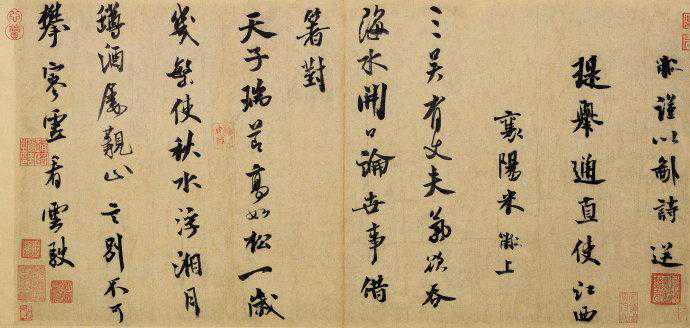 黻謹以鄙詩送
提舉通直使江西
襄陽米黻上
三吳有丈夫氣欲吞
海水開口論世事借
箸對
天子瑞節高如松一歲
幾繫使秋水浮湘月
樽酒屬觀山言別不可
攀寒雲看雲駛